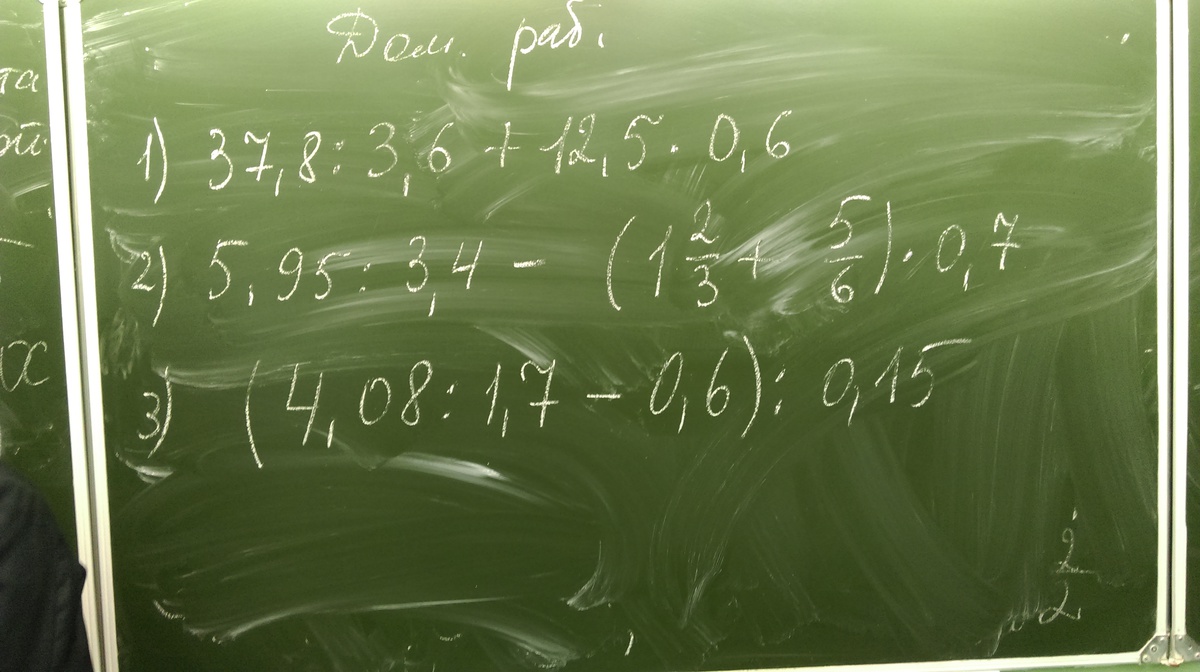 Дом. раб.
1) 37,8 : 3,6 + 12,5 · 0,6
2) 5,95 : 3,4 - (1 2/3 + 5/6) · 0,7
3) (4,08 : 1,7 - 0,6) : 0,15